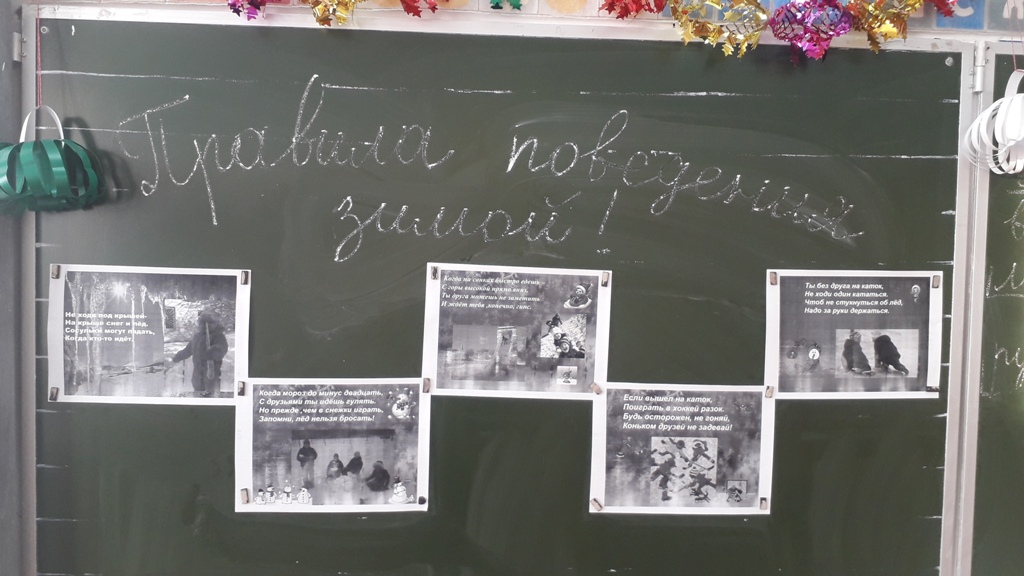 Правила поведения
зимой!
Не ходи под крышей-
На крыше снег и лёд.
Сосульки могут падать,
Когда кто-то идёт.
Когда мороз до минус двадцать,
С друзьями ты идёшь гулять.
Но прежде ,чем в снежки играть,
Запомни, лёд нельзя бросать!
Когда на санках быстро едешь
С горы высокой прямо вниз,
Ты друга можешь не заметить,
И ждёт тебя ,конечно, гипс.
Если вышел на каток,
Поиграть в хоккей разок.
Будь осторожен, не гоняй,
Коньком друзей не задевай!
Ты без друга на каток,
Не ходи один кататься.
Чтоб не стукнуться об лёд,
Надо за руки держаться.